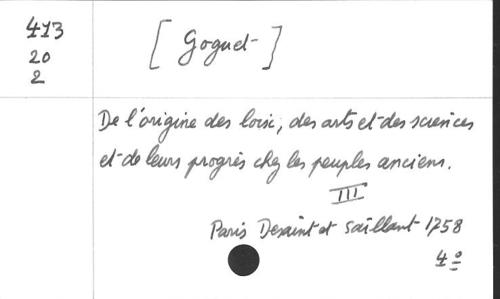 413
20
2
[Goguet]
De l'origine des loix, des arts et des sciences
et de leurs progrès chez les peuples anciens.
III
Paris Desaint et Saillant 1758
4º